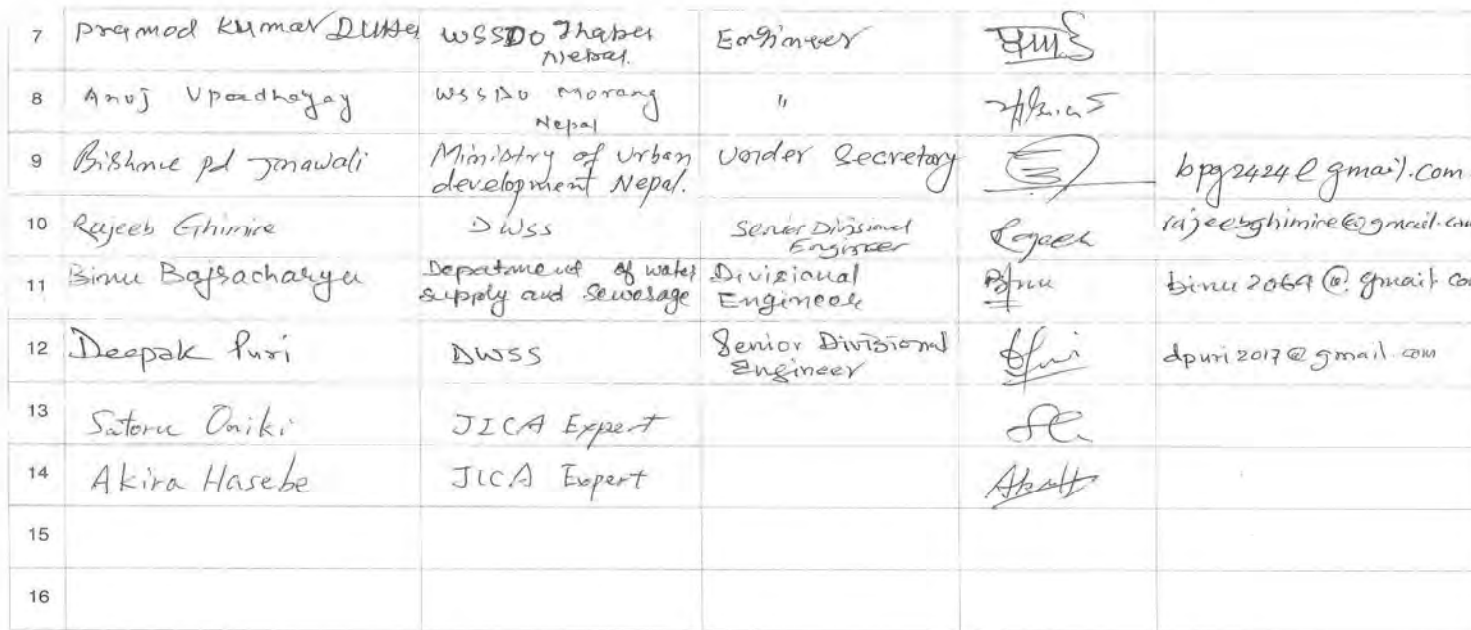 7 Pramod Kumar WSSDO Nepal. Engineer
8 Anuj Upadhayay WSSDO Morang Nepal "
9 Bishnu pd Jnawali Ministry of Urban development Nepal. Under Secretary bpg2424@gmail.com
10 Rajeeb Ghimire DWSS Senior Divisional Engineer Rajeeb rajeebghimire@gmail.com
11 Binu Bajracharya Department of water supply and Sewerage Divisional Engineer Binu binu2069@gmail.com
12 Deepak Puri DWSS Senior Divisional Engineer dpuri2017@gmail.com
13 Satoru Oniki JICA Expert
14 Akira Hasebe JICA Expert
15
16